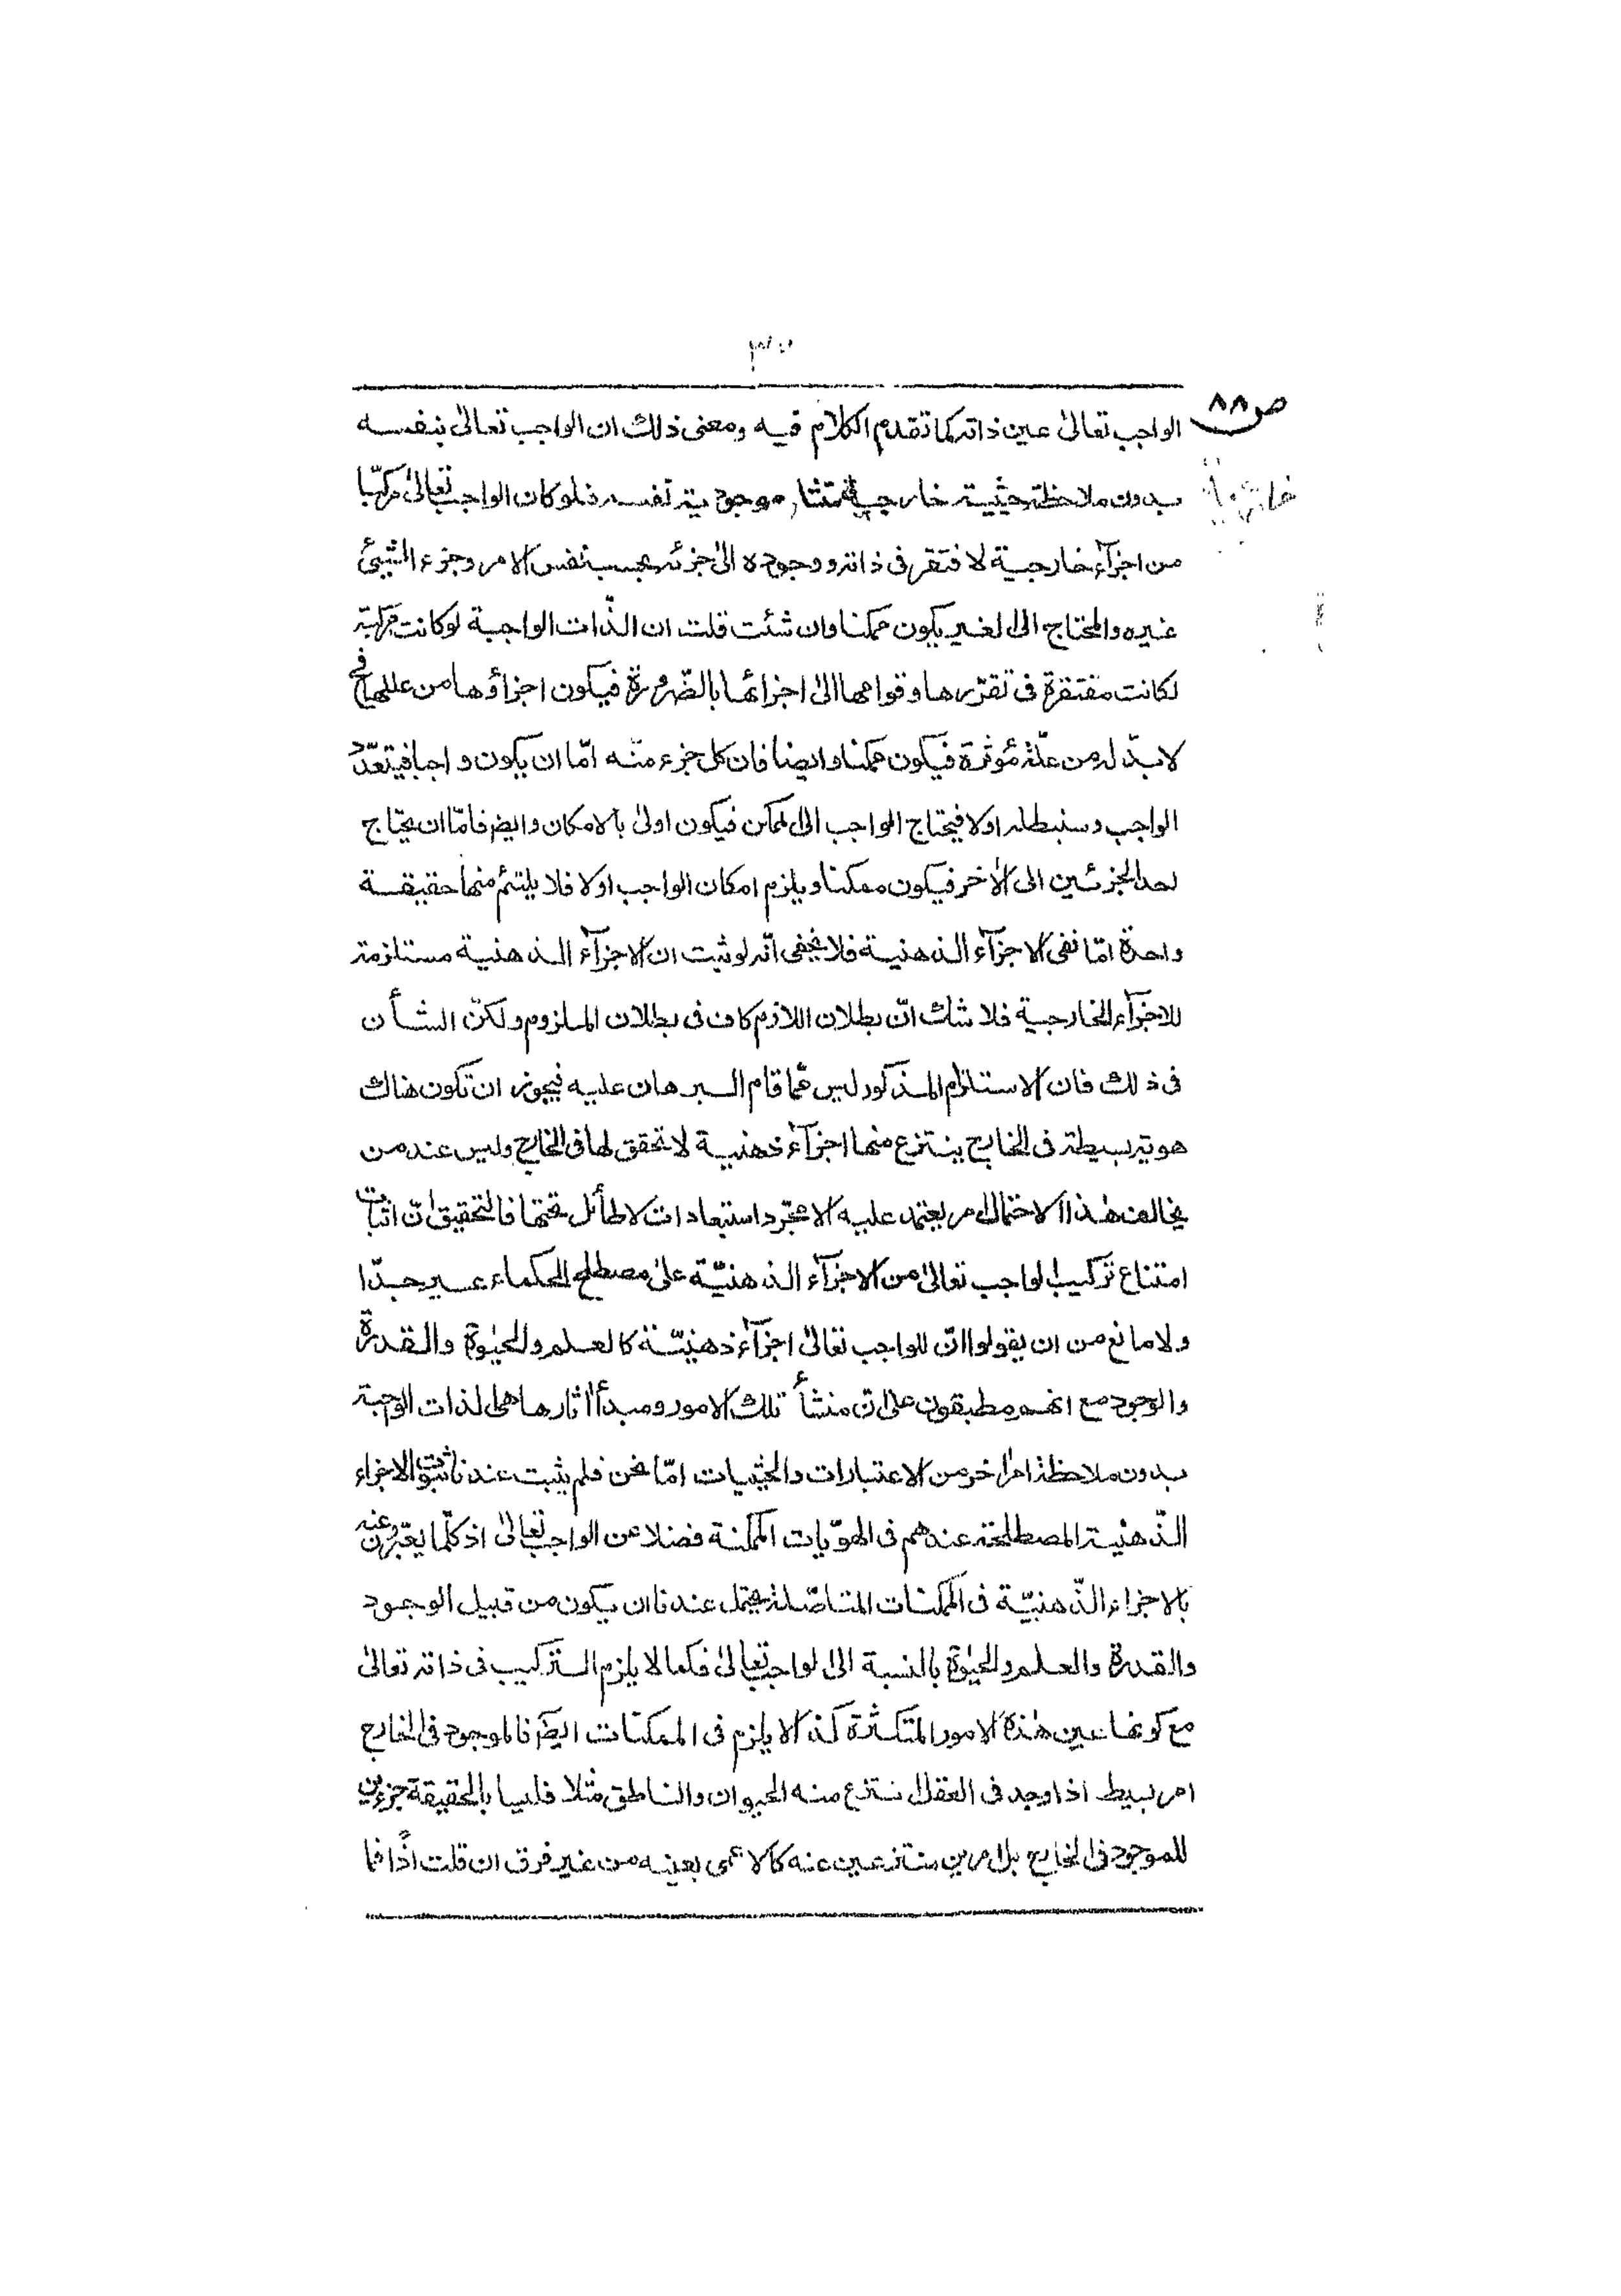 ص ٨٨
الواجب تعالىٰ عين ذاته كما تقدم الكلام فيه ومعنى ذلك ان الواجب تعالىٰ بنفسه
بدون ملاحظة حيثية خارجية منشا موجودية نفسه فلو كان الواجب تعالىٰ مركبّا
من اجزآء خارجية لافتقر فى ذاته ووجوده الىٰ جزئه بحسب نفس الامر وجزء الشيئ
غيره والمحتاج الى الغير يكون ممكنا وان شئت قلت ان الذّات الواجبة لو كانت مركبة
لكانت مفتقرة فى تقرّرها وقوامها الىٰ اجزائها بالضّرورة فيكون اجزاؤها من عللها فح
لابدّ له من علّة مؤثرة فيكون ممكنا وايضا فان كل جزء منه امّا ان يكون واجبا فيتعدّد
الواجب وسنبطله اولا فيحتاج الواجب الى الممكن فيكون اولىٰ بالامكان وايضر فامّا ان يحتاج
احد الجزئين الى الاٰخر فيكون ممكنا ويلزم امكان الواجب اولا فلا يلتئم منهما حقيقة
واحدة امّا نفى الاجزآء الذهنية فلا يخفى انّه لو ثبت ان الاجزآء الذهنية مستلزمة
للاجزآء الخارجية فلا شك انّ بطلان اللازم كاف فى بطلان الملزوم ولكنّ الشأن
فى ذلك فان الاستلزام المذكور ليس ممّا قام البرهان عليه فيجوز ان تكون هناك
هوية بسيطة فى الخارج ينتزع منها اجزآء ذهنية لا تحقق لها فى الخارج وليس عند من
يخالف هٰذا الاحتمال امر يعتمد عليه الا مجّرد استبعادات لا طأئل تحتها فالتحقيق انّ اثبات
امتناع تركيب الواجب تعالىٰ من الاجزآء الذهنيّة علىٰ مصطلح الحكماء عسير جدّا
ولا مانع من ان يقولوا انّ للواجب تعالىٰ اجزآء ذهنيّة كالعلم والحيٰوة والقدرة
والوجود مع انهم مطبقون علىٰ انّ منشأ تلك الامور ومبدأ اٰثارها هى الذات الواجبة
بدون ملاحظة امر اٰخر من الاعتبارات والحيثيات امّا نحن فلم يثبت عندنا ثبوت الاجزاء
الذّهنية المصطلحة عندهم فى الهوّيات الممكنة فضلا عن الواجب تعالىٰ اذ كلّما يعبّرون عنه
بالاجزاء الذّهنيّة فى الممكنات المتاصّلة يحتمل عندنا ان يكون من قبيل الوجود
والقدرة والعلم والحيٰوة بالنسبة الى الواجب تعالىٰ فكما لا يلزم التركيب فى ذاته تعالىٰ
مع كونها عين هٰذه الامور المتكثرة كذا لا يلزم فى الممكنات ايضر فالموجود فى الخارج
امر بسيط اذا وجد فى العقل انتزع منه الحيوان والناطق مثلا فليسا بالحقيقة جزءين
للموجود فى الخارج بل امرين منتزعين عنه كالاعمى بعينه من غير فرق ان قلت اذًا فما